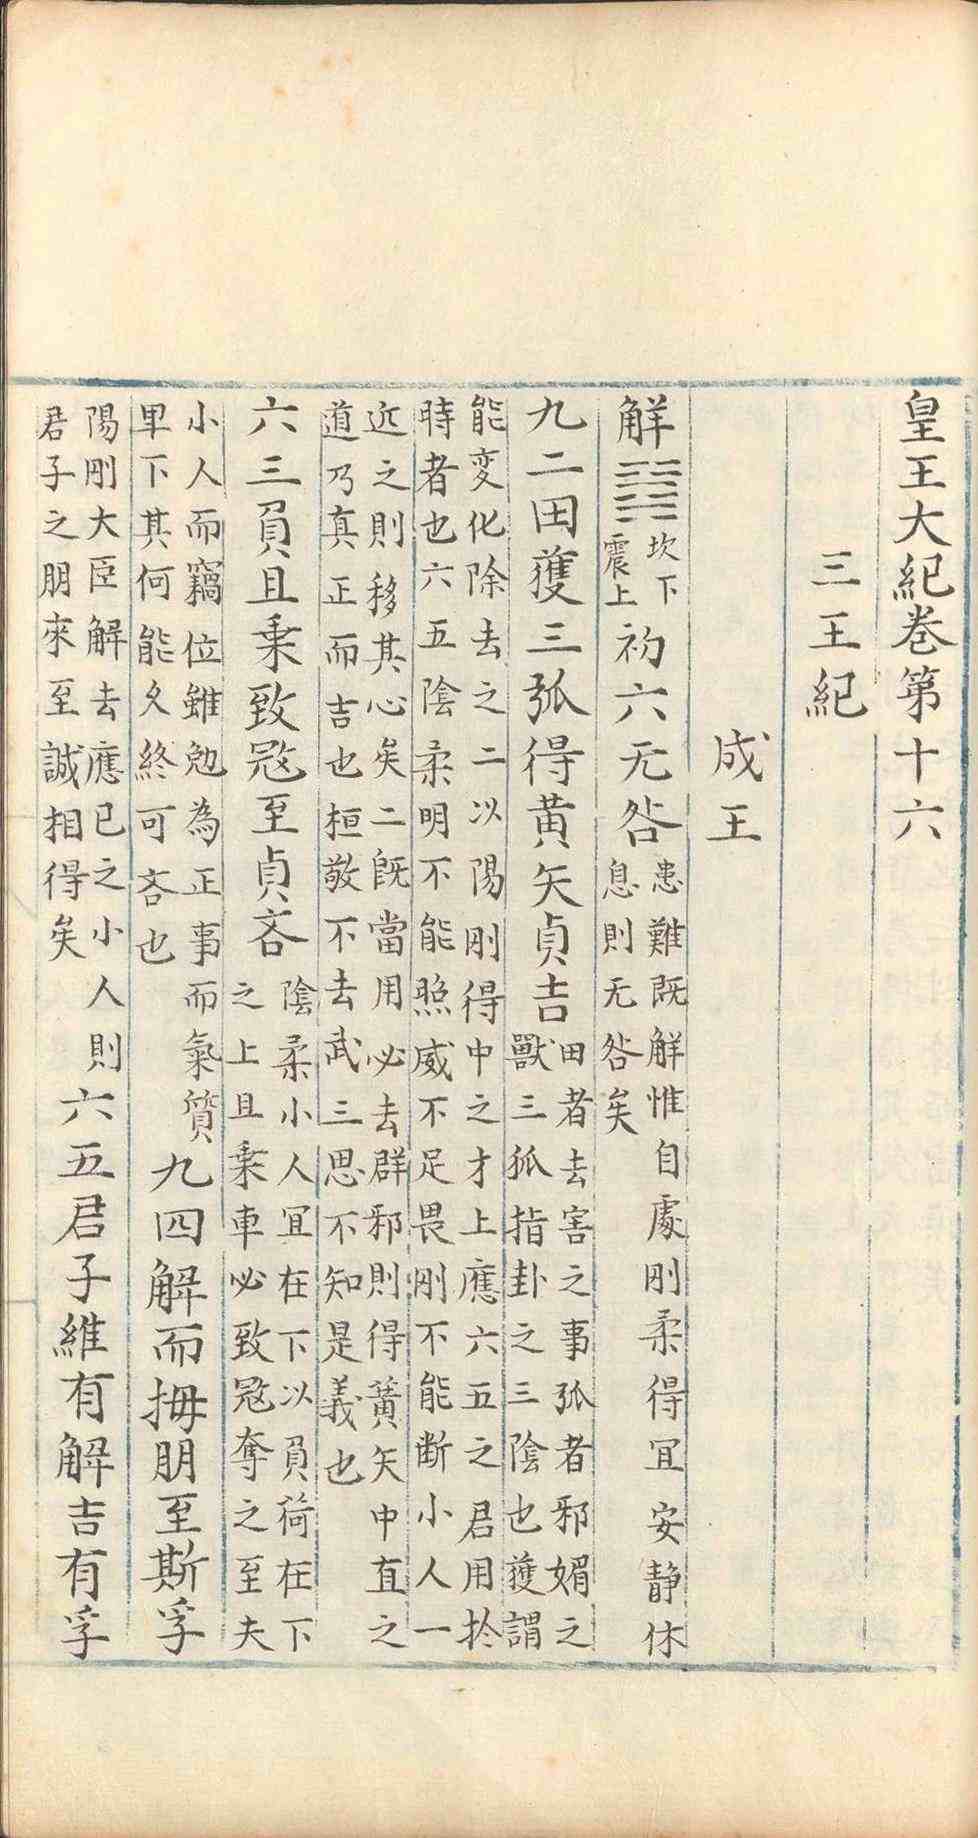 皇王大紀卷第十六
三王紀
成王
解䷧坎下震上初六无咎患難既解惟自處剛柔得冝安靜休息則无咎矣
九二田獲三狐得黃矢貞吉田者去害之事狐者邪媚之獸三狐指卦之三陰也獲謂
能変化除去之二以陽剛得中之才上應六五之君用扵時者也六五陰柔明不能照威不足畏剛不能断小人一
近之則移其心矣二既當用必去群邪則得黃矢中直之道乃真正而吉也桓敬不去武三思不知是義也
六三負且乗致冦至貞吝陰柔小人冝在下以負荷在下之上且乗車必致冦奪之至夫
小人而竊位雖勉為正事而氣質卑下其何能久終可吝也九四解而拇朋至斯孚
陽剛大臣解去應已之小人則君子之朋來至誠相得矣六五君子維有解吉有孚